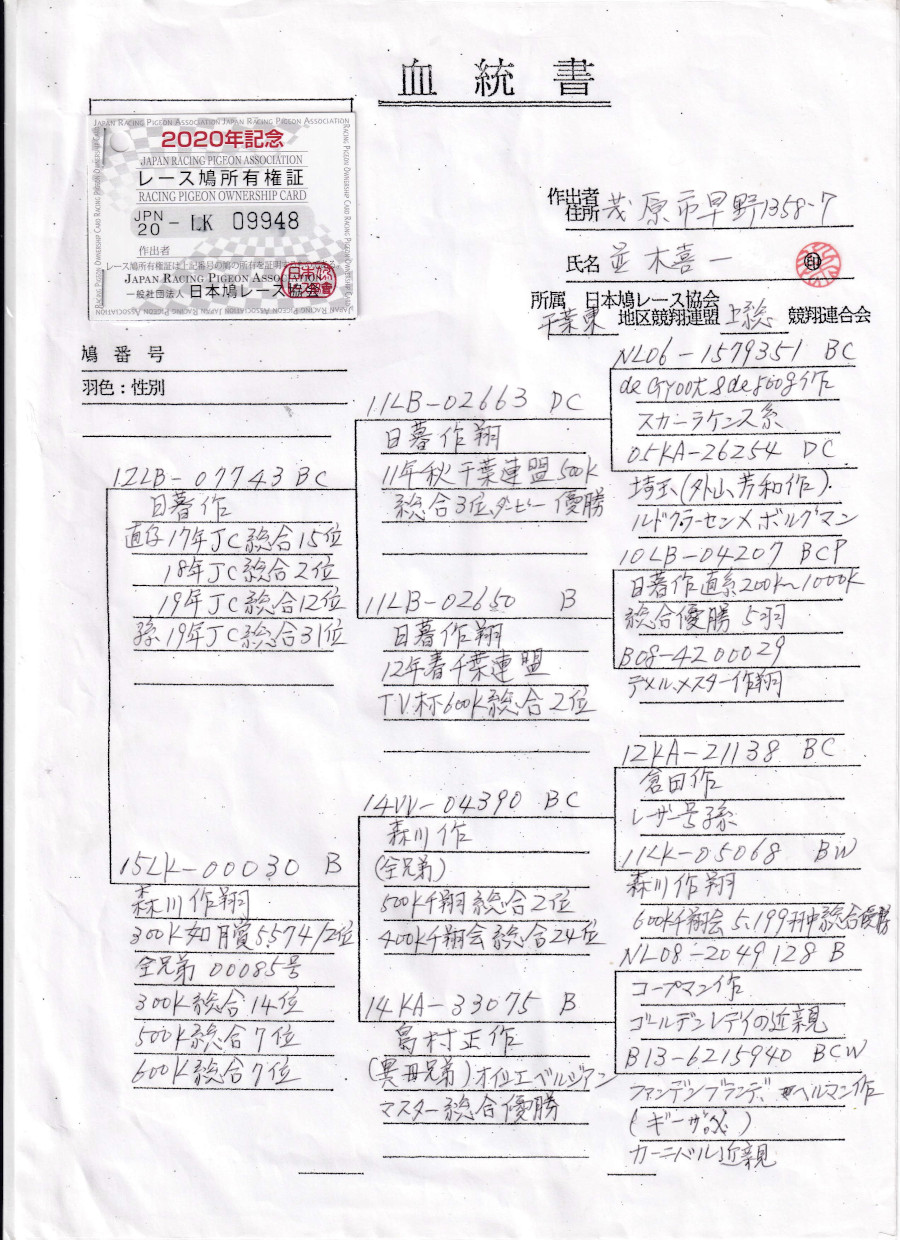 血統書
JAPAN RACING PIGEON ASSOCIATION JAPAN RACING PIGEON ASSOCIATION
2020年記念
JAPAN RACING PIGEON ASSOCIATION
レース鳩所有権証
RACING PIGEON OWNERSHIP CARD
JPN
20 - LK 09948
作出者
JAPAN RACING PIGEON ASSOCIATION
一般社団法人 日本鳩レース協会
作出者
住所 茂原市早野1358-7
氏名 並木喜一 印
所属 日本鳩レース協会
千葉東 地区競翔連盟 上総 競翔連合会
鳩番号
羽色:性別
12LB-07743 BC
日暮作
直仔17年JC総合15位
18年JC総合2位
19年JC総合12位
孫19年JC総合31位
15LK-00030 B
森川作翔
300K如月賞5574/2位
全兄弟 00085号
300K総合14位
500K総合7位
600K総合7位
11LB-02663 DC
日暮作翔
11年秋千葉連盟500K
総合3位ダービー優勝
11LB-02650 B
日暮作翔
12年春千葉連盟
TV杯600K総合2位
14VV-04390 BC
森川作
(全兄弟)
500K千翔総合2位
400K千翔会総合24位
14KA-33075 B
島村正作
(異母兄弟)オインエベルジアン
マスター総合優勝
NL06-1579351 BC
スカーラケンス系
05KA-26254 DC
埼玉(外山芳和作)
ルドクラーセンメボルグマン
10LB-04207 BCP
日暮作直系200K~1000K
総合優勝 5羽
B08-4200029
デメルメスター作翔
12KA-21138 BC
倉田作
レーザー号孫
11LK-05068 BW
森川作翔
600K千翔会5,199羽中総合優勝
NL08-2049128 B
コープマン作
ゴールデンレディの近親
B13-6215940 BCW
ファンデンブランデ
ヘルマン作
カーニバル近親